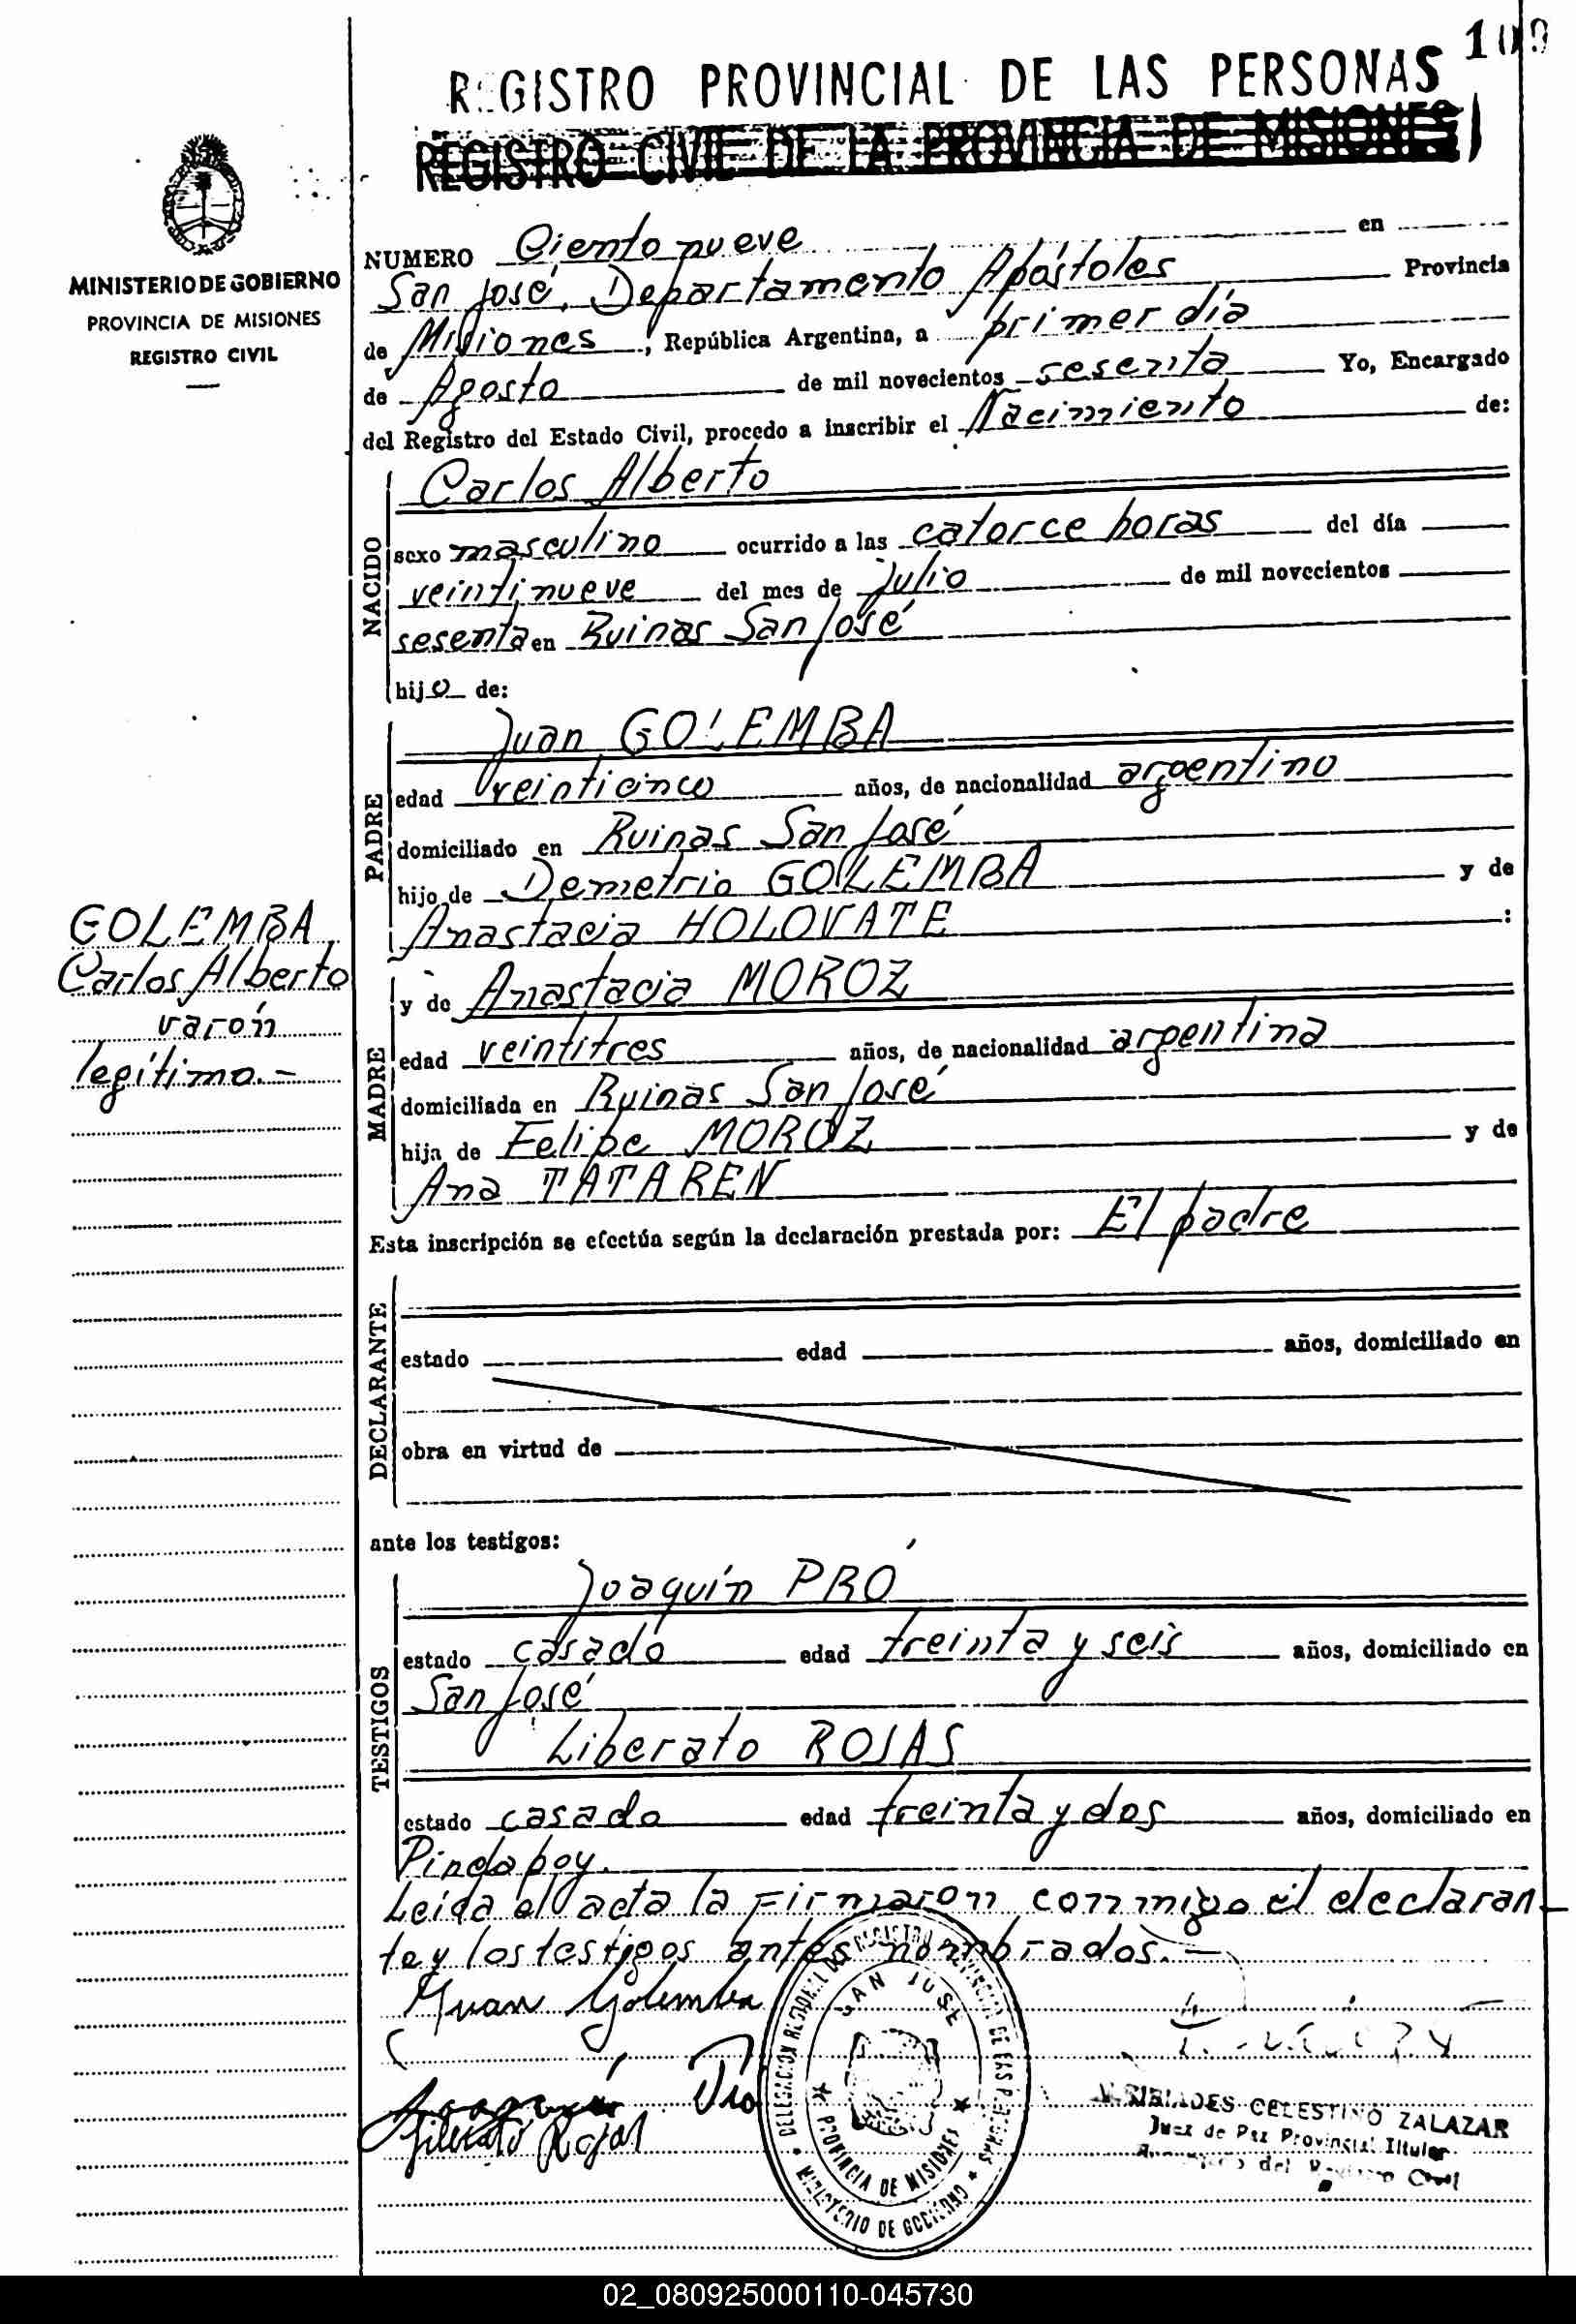 109
REGISTRO PROVINCIAL DE LAS PERSONAS
REGISTRO CIVIL DE LA PROVINCIA DE MISIONES
MINISTERIO DE GOBIERNO
PROVINCIA DE MISIONES
REGISTRO CIVIL
NUMERO Ciento nueve en
San José, Departamento Apóstoles Provincia
de Misiones, República Argentina, a primer día
de Agosto de mil novecientos sesenta Yo, Encargado
del Registro del Estado Civil, procedo a inscribir el Nacimiento de:
NACIDO
Carlos Alberto
sexo masculino ocurrido a las catorce horas del día
veintinueve del mes de julio de mil novecientos
sesenta en Ruinas San José
hijo de:
PADRE
Juan GOLEMBA
edad veinticinco años, de nacionalidad argentino
domiciliado en Ruinas San José
hijo de Demetrio GOLEMBA y de
Anastacia HOLOVATE
GOLEMBA,
Carlos Alberto
varón
legítimo.-
MADRE
y de Anastacia MOROZ
edad veintitres años, de nacionalidad argentina
domiciliada en Ruinas San José
hija de Felipe MOROZ y de
Ana TATAREN
Esta inscripción se efectúa según la declaración prestada por: El padre
DECLARANTE
estado edad años, domiciliado en
obra en virtud de
ante los testigos:
TESTIGOS
Joaquín PRÓ
estado casado edad treinta y seis años, domiciliado en
San José
Liberato ROJAS
estado casado edad treinta y dos años, domiciliado en
Pindapoy.
Leída el acta la Firmaron conmigo el declaran-
te y los testigos antes nombrados.-
Juan Golemba
Joaquín Pró
Liberato Rojas
SAN JOSE
PROVINCIA DE MISIONES
MINISTERIO DE GOBIERNO
CELESTINO ZALAZAR
Juez de Paz Provincial Titular
del Registro Civil
02_080925000110-045730